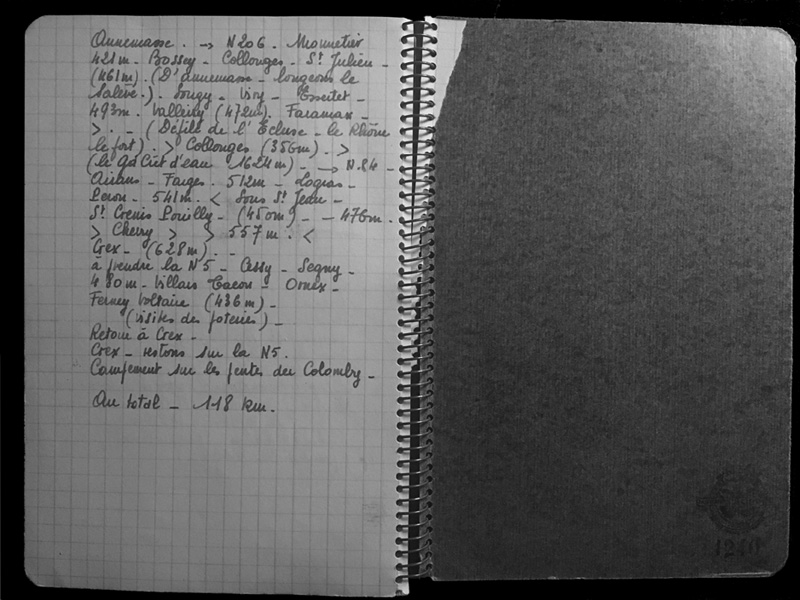 Annemasse. → N206. Monnetier
421m. Bossey - Collonges - St Julien -
(461m). (D'annemasse - longeons le
Salève.). Songy - Viry - Essertet -
493m. Valleiry (472m). Faramax -
> . - (Défilé de l'Ecluse - le Rhône
le fort). > Collonges (356m). >
(le gd Crêt d'eau 1624m) - → N.84 -
Airans - Farges. 512m - Logras -
Peron - 541m. < Sous St Jean -
St Genis Pouilly - (450m) - - 476m.
> Chevry > > 557m. <
Gex - (628m). -
à prendre la N5 - Cessy - Segny -
480m - Villars Tacon - Ornex -
Ferney Voltaire (436m) -
(visites des poteries) -
Retour à Gex -
Gex - restons sur la N5.
Campement sur les pentes du Colomby -
Au total - 118 km.
1240